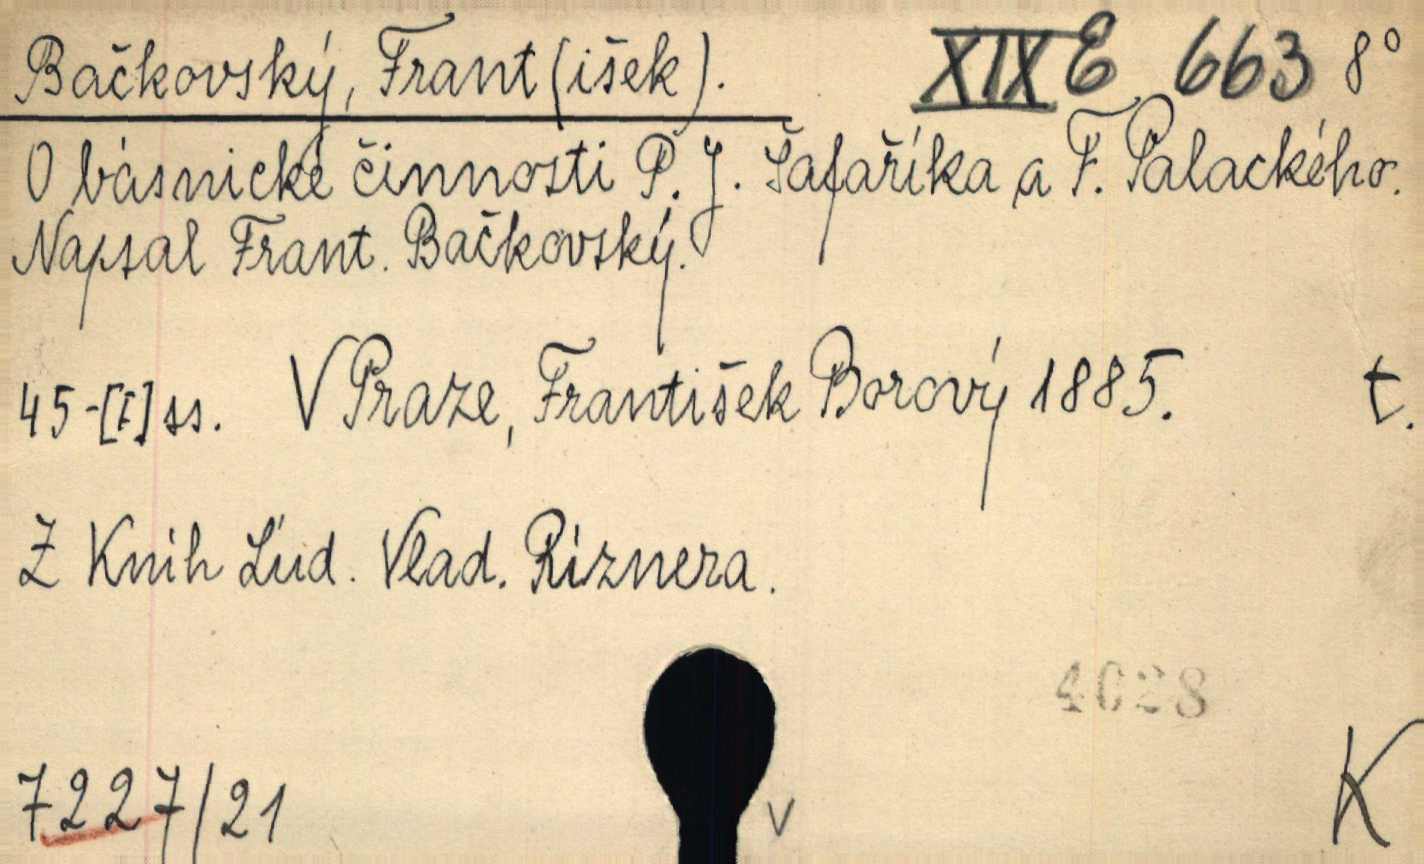 Bačkovský, Frant(išek). XIX E 663 8°
O básnické činnosti P. J. Šafaříka a F. Palackého.
Napsal Frant. Bačkovský.
45-[I] ss. V Praze, František Borový 1885. t.
Z Knih Ľud. Vlad. Riznera.
4028
7227/21 V K